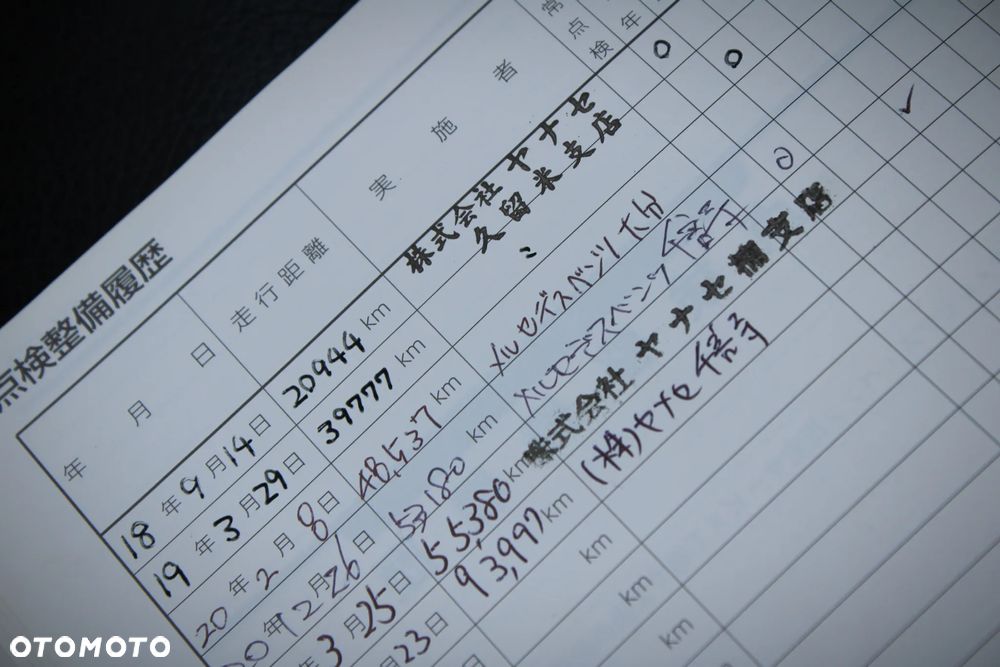 点検整備履歴
年 月 日 走行距離 実施者
常点検 年
18年9月14日 20944 km 株式会社ヤナセ
久留米支店
19年3月29日 39777 km 〃
20年2月8日 48,537 km メルセデスベンツ大分
20年12月26日 53180 km メルセデスベンツ
3月25日 55,380 km 株式会社ヤナセ 支店
23日 93,997 km (株)ヤナセ
km
km
km
OTOMOTO